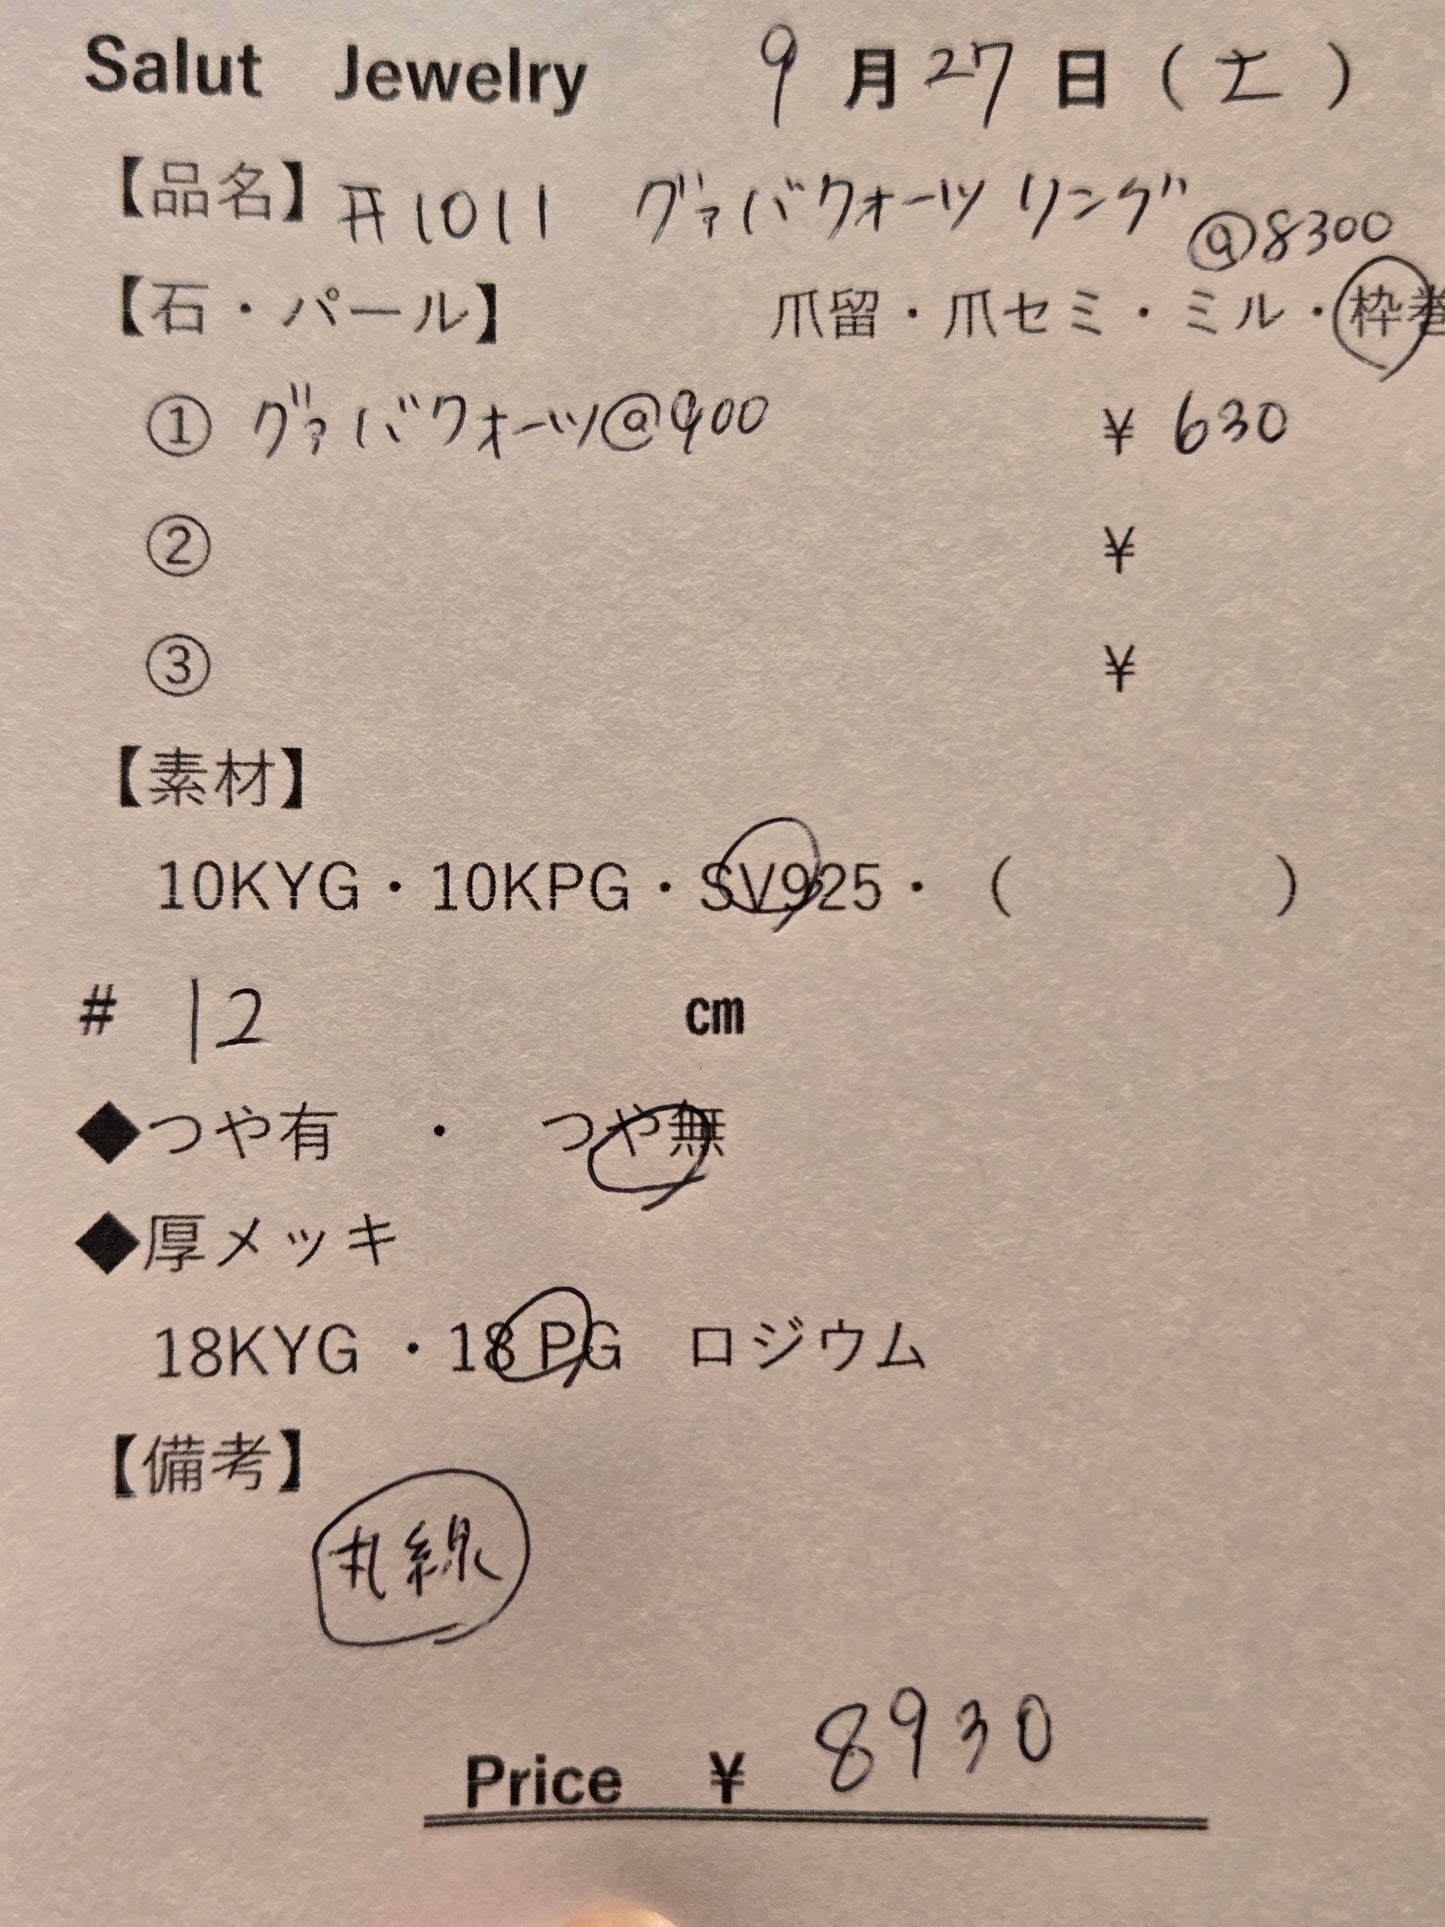 Salut Jewelry 9月27日(土)
【品名】#1011 グァバクォーツ リング @8300
【石・パール】 爪留・爪セミ・ミル・枠巻
① グァバクォーツ@900 ¥630
② ¥
③ ¥
【素材】
10KYG・10KPG・SV925・( )
# 12 cm
◆つや有 ・ つや無
◆厚メッキ
18KYG ・18PG ロジウム
【備考】
丸線
Price ¥ 8930